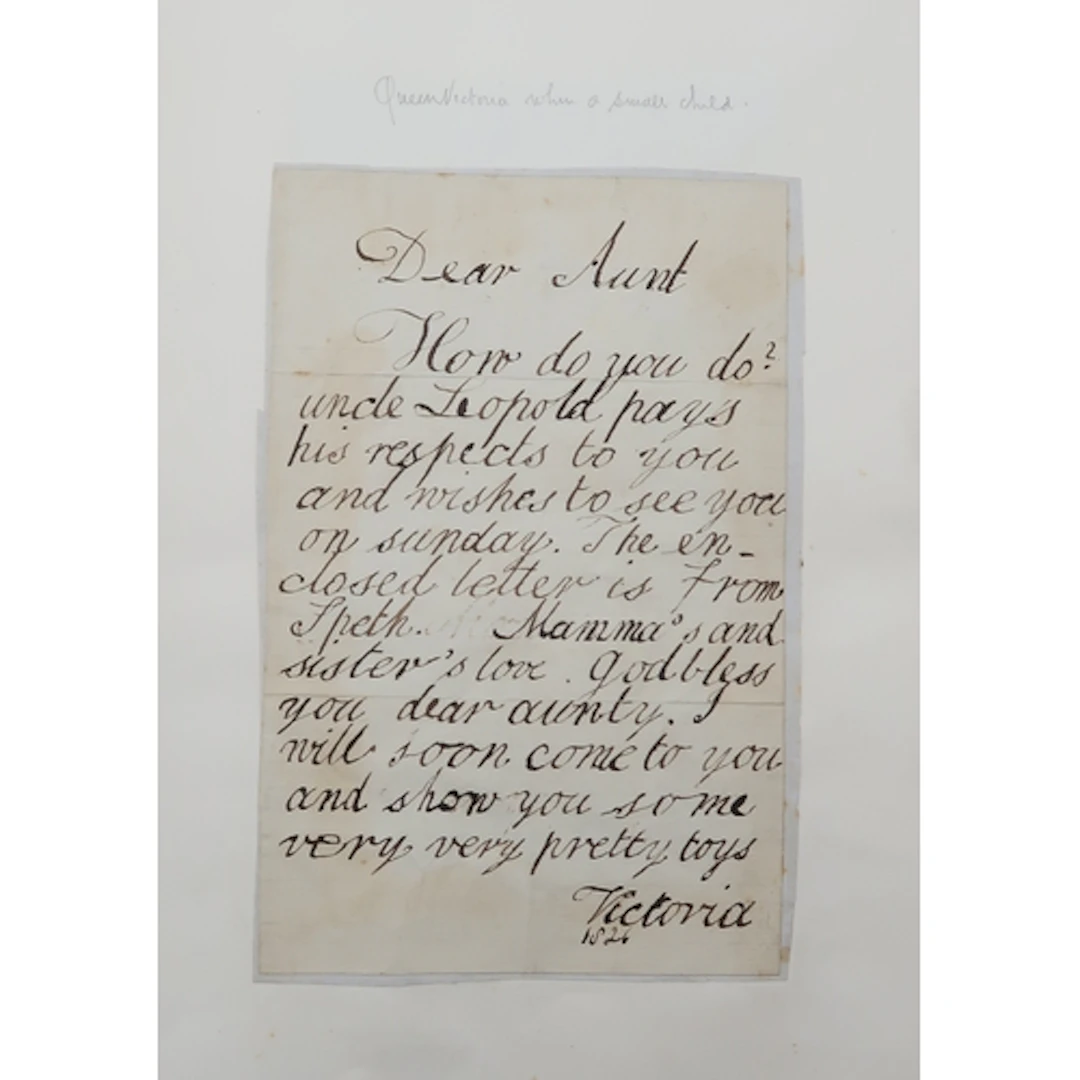 Queen Victoria when a small child.
Dear Aunt
How do you do?
uncle Leopold pays
his respects to you
and wishes to see you
on sunday. The en-
closed letter is from
Speth. Mamma's and
sister's love. God bless
you dear aunty. I
will soon come to you
and show you some
very very pretty toys
Victoria
1826